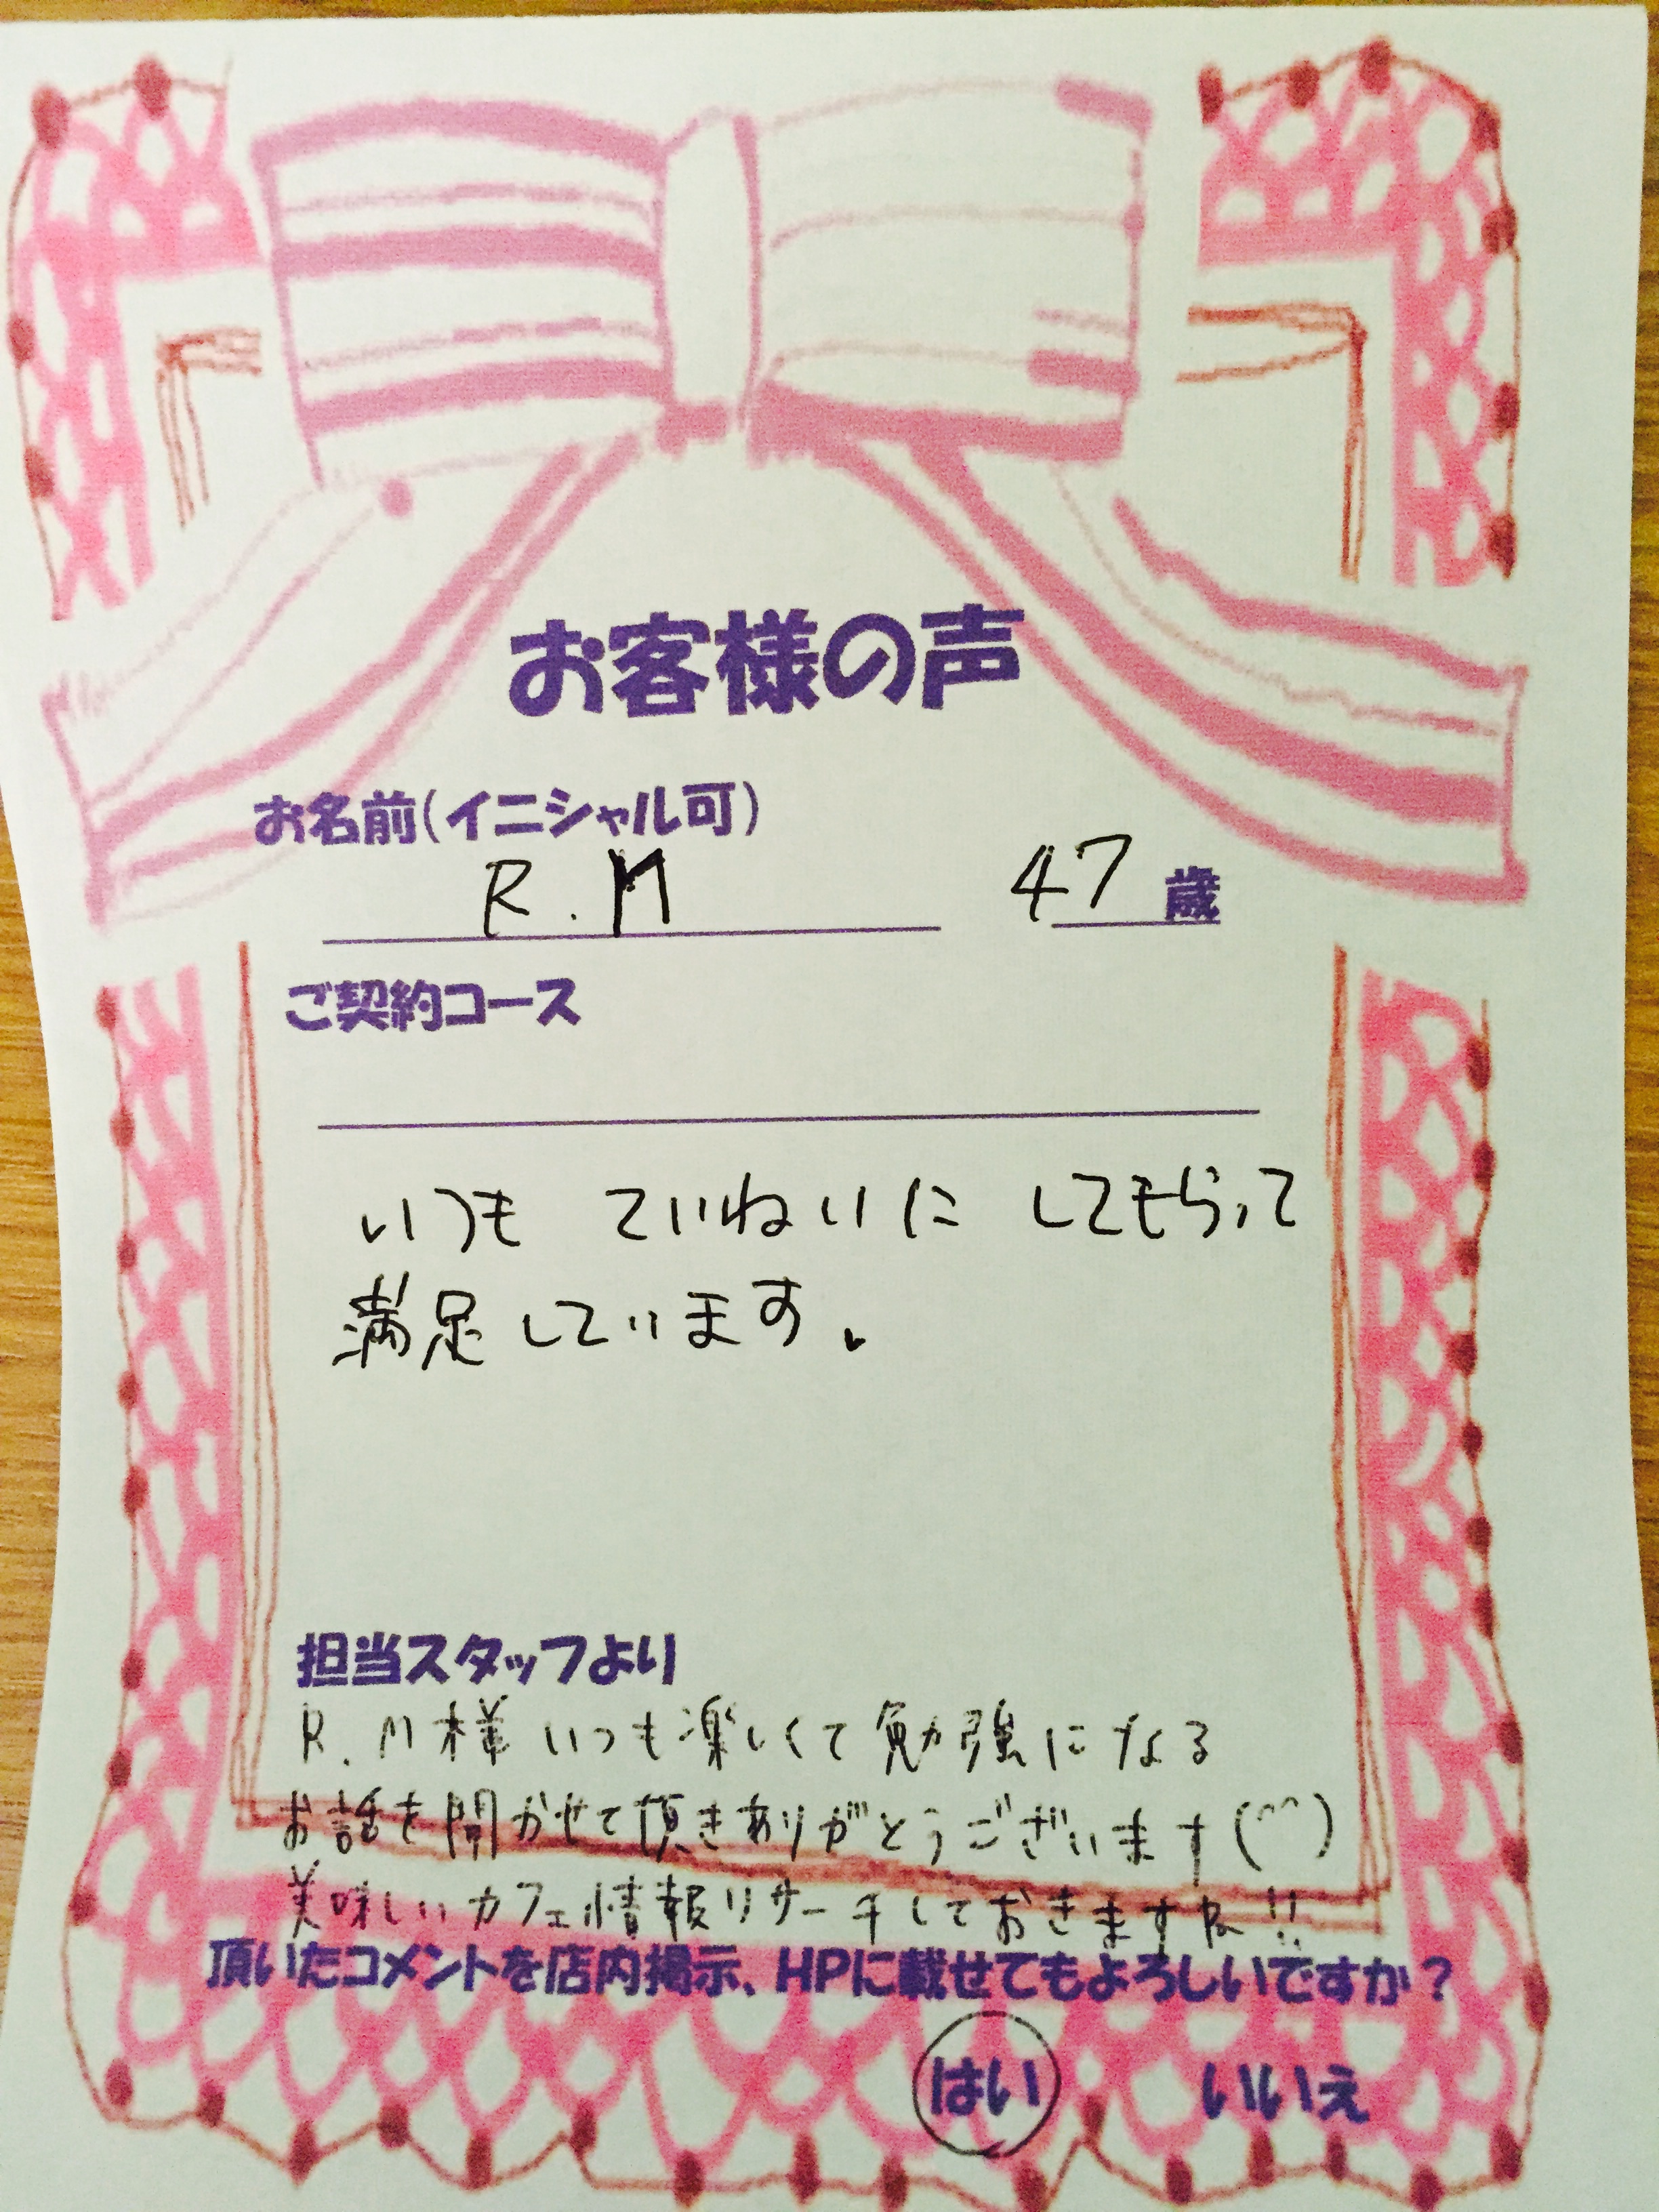 お客様の声
お名前(イニシャル可)
R.M 47歳
ご契約コース
いつも ていねいに してもらって
満足しています。
担当スタッフより
R.M様いつも楽しくて勉強になる
お話を聞かせて頂きありがとうございます(^^)
美味しいカフェ情報リサーチしておきますね!!
頂いたコメントを店内掲示、HPに載せてもよろしいですか?
はい いいえ